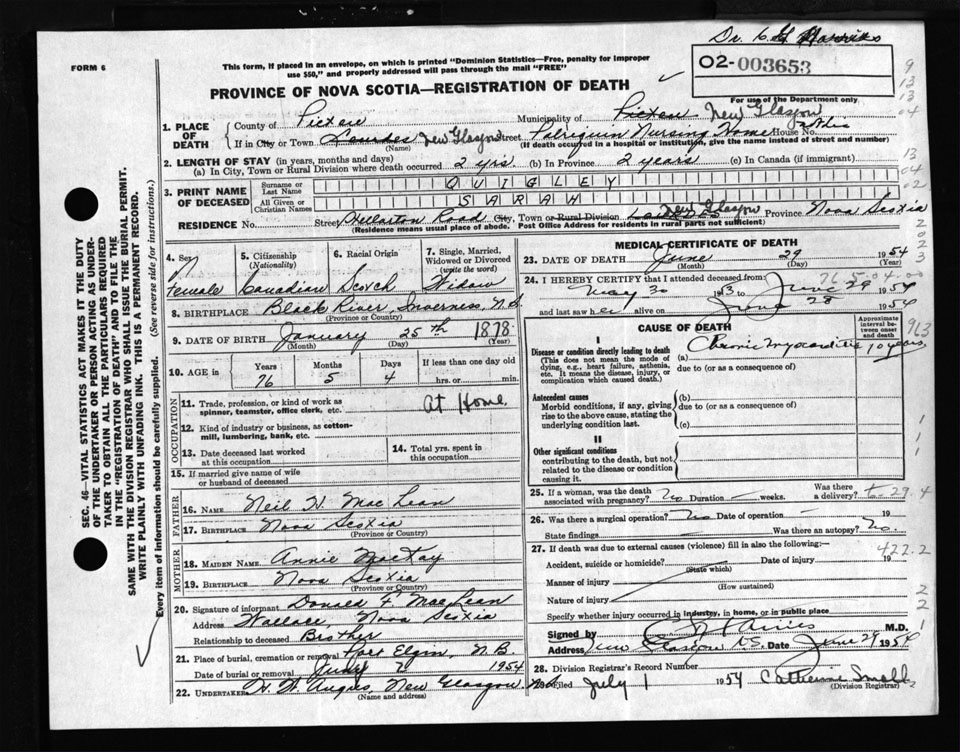 Dr. C. G. Harries
FORM 6
This form, if placed in an envelope, on which is printed "Dominion Statistics—Free, penalty for improper
use $50," and properly addressed will pass through the mail "FREE"
02-003653
PROVINCE OF NOVA SCOTIA—REGISTRATION OF DEATH
For use of the Department only
1. PLACE OF DEATH
County of Pictou Municipality of Pictou New Glasgow
If in City or Town Lourdes New Glasgow Street Nursing Home House No.
(Name) (If death occurred in a hospital or institution, give the name instead of street and number)
2. LENGTH OF STAY (in years, months and days)
(a) In City, Town or Rural Division where death occurred 2 yrs (b) In Province 2 years (c) In Canada (if immigrant)
3. PRINT NAME OF DECEASED
Surname or Last Name QUIGLEY
All Given or Christian Names SARAH
RESIDENCE No. Street Stellarton Road City, Town or Rural Division Lourdes New Glasgow Province Nova Scotia
(Residence means usual place of abode. Post Office Address for residents in rural parts not sufficient)
4. Sex
Female
5. Citizenship
(Nationality)
Canadian
6. Racial Origin
Scotch
7. Single, Married,
Widowed or Divorced
(write the word)
Widow
8. BIRTHPLACE Black River, Inverness, N.S.
(Province or Country)
9. DATE OF BIRTH January 25th 1878
(Month) (Day) (Year)
10. AGE in
Years Months Days If less than one day old
76 5 4 hrs. or min.
OCCUPATION
11. Trade, profession, or kind of work as
spinner, teamster, office clerk, etc. At Home
12. Kind of industry or business, as cotton-
mill, lumbering, bank, etc.
13. Date deceased last worked
at this occupation
14. Total yrs. spent in
this occupation
15. If married give name of wife
or husband of deceased
FATHER
16. NAME Neil H. MacLean
17. BIRTHPLACE Nova Scotia
(Province or Country)
MOTHER
18. MAIDEN NAME Annie MacKay
19. BIRTHPLACE Nova Scotia
(Province or Country)
20. Signature of informant Donald F. MacLean
Address Wallace, Nova Scotia
Relationship to deceased Brother
21. Place of burial, cremation or removal Port Elgin, N.B.
Date of burial or removal July 2 1954
22. UNDERTAKER H. W. Angus, New Glasgow, N.S.
(Name and address)
MEDICAL CERTIFICATE OF DEATH
23. DATE OF DEATH June 29 1954
(Month) (Day) (Year)
24. I HEREBY CERTIFY that I attended deceased from:
May 30 to June 29 1954
and last saw her alive on June 28 1954
CAUSE OF DEATH
Approximate
interval between
onset
and death
I
Disease or condition directly leading to death
(This does not mean the mode of
dying, e.g., heart failure, asthenia,
etc. It means the disease, injury, or
complication which caused death.)
(a) Chronic Myocarditis 10 years
due to (or as a consequence of)
Antecedent causes
Morbid conditions, if any, giving
rise to the above cause, stating the
underlying condition last.
(b)
due to (or as a consequence of)
(c)
II
Other significant conditions
contributing to the death, but not
related to the disease or condition
causing it.
25. If a woman, was the death
associated with pregnancy? No Duration — weeks. Was there
a delivery?
26. Was there a surgical operation? No Date of operation — 19
State findings Was there an autopsy? No.
27. If death was due to external causes (violence) fill in also the following:
Accident, suicide or homicide? Date of injury 19
(State which)
422.2
Manner of injury
(How sustained)
Nature of injury
Specify whether injury occurred in industry, in home, or in public place
Signed by M.D.
Address New Glasgow N.S. Date June 29 1954
28. Division Registrar's Record Number
29. Filed July 1 1954 Catherine Small
(Division Registrar)
SEC. 46—VITAL STATISTICS ACT MAKES IT THE DUTY
OF THE UNDERTAKER OR PERSON ACTING AS UNDER-
TAKER TO OBTAIN ALL THE PARTICULARS REQUIRED
IN THE "REGISTRATION OF DEATH" AND TO FILE THE
SAME WITH THE DIVISION REGISTRAR WHO SHALL ISSUE THE BURIAL PERMIT.
WRITE PLAINLY WITH UNFADING INK. THIS IS A PERMANENT RECORD.
Every item of information should be carefully supplied. (See reverse side for instructions.)